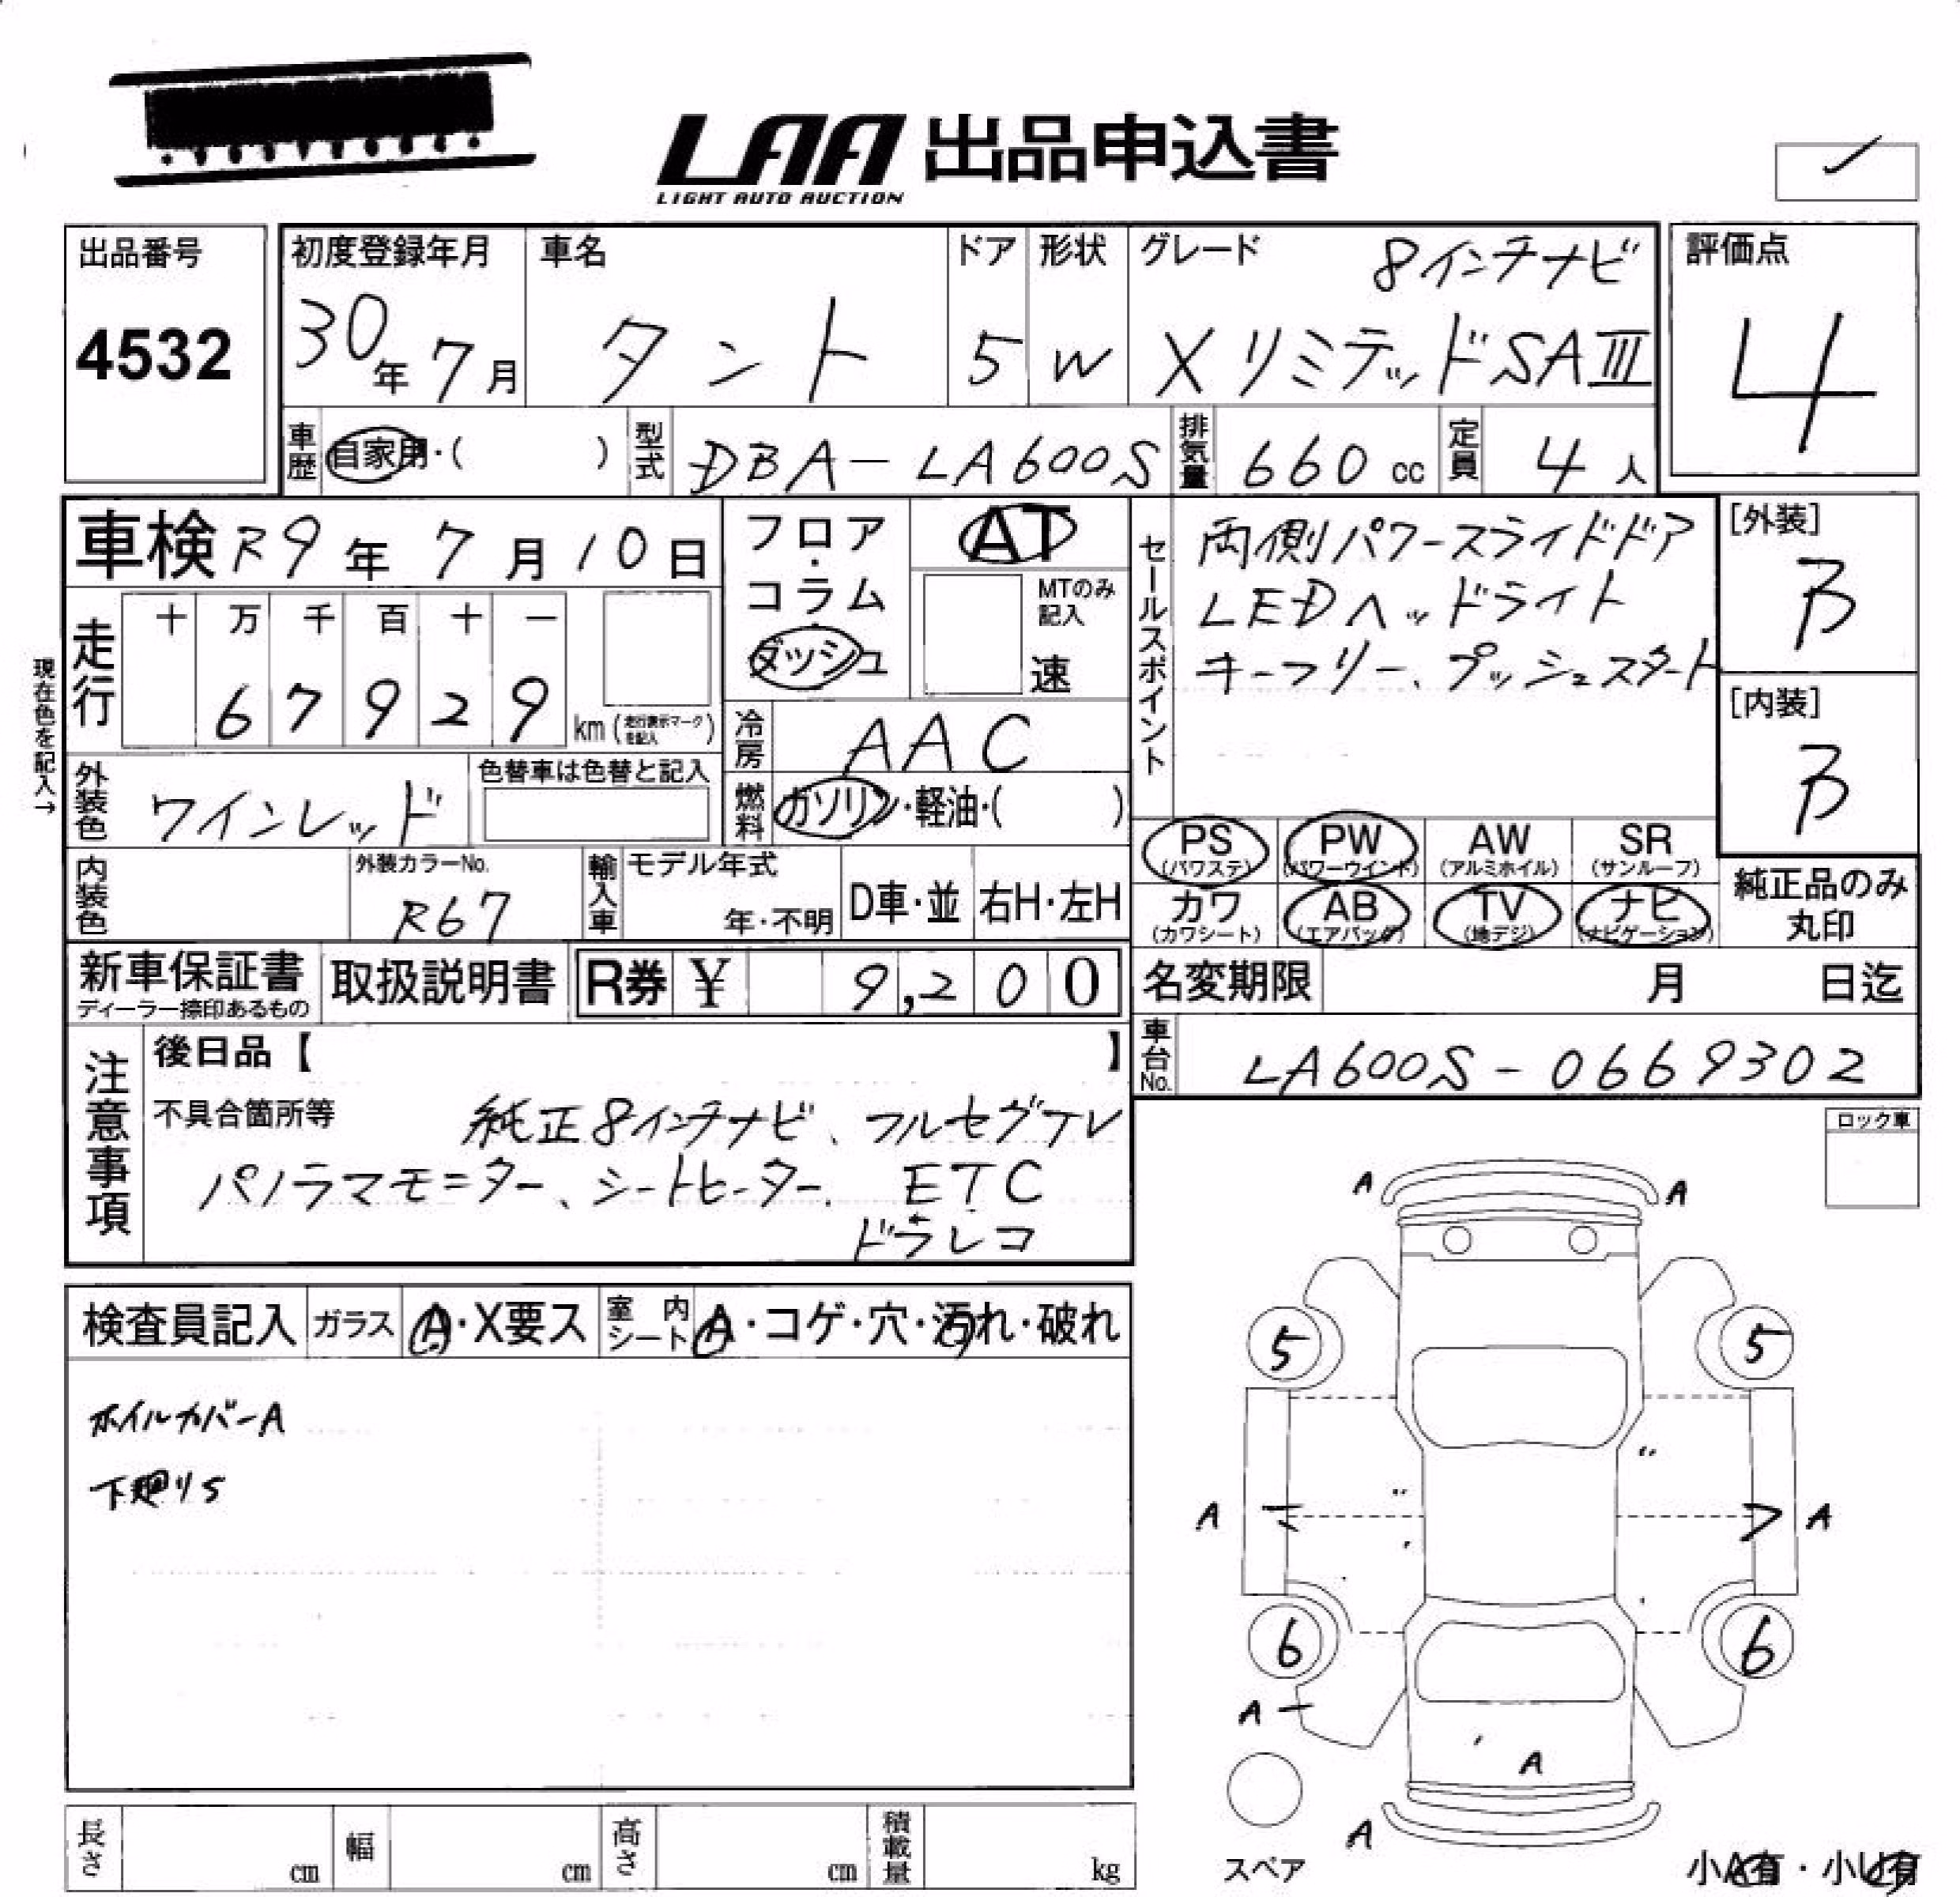 LAA 出品申込書
LIGHT AUTO AUCTION
出品番号
4532
初度登録年月
30年 7月
車名
タント
ドア
5
形状
W
グレード
8インチナビ
XリミテッドSAⅢ
評価点
4
車歴 自家用・( )
型式 DBA-LA600S
排気量 660 cc
定員 4人
車検 R9年 7月 10日
フロア・コラム
ダッシュ
AT
MTのみ記入
速
セールスポイント
両側パワースライドドア
LEDヘッドライト
キーフリー、プッシュスタート
[外装]
B
[内装]
B
現在色を記入→
走行
十 万 千 百 十 一
6 7 9 2 9 km (走行表示マークを記入)
冷房 AAC
外装色 ワインレッド
色替車は色替と記入
燃料 ガソリン・軽油・( )
PS (パワステ)
PW (パワーウインド)
AW (アルミホイル)
SR (サンルーフ)
カワ (カワシート)
AB (エアバッグ)
TV (地デジ)
ナビ (ナビゲーション)
純正品のみ
丸印
内装色
外装カラーNo.
R67
輸入車
モデル年式
年・不明
D車・並
右H・左H
新車保証書
ディーラー捺印あるもの
取扱説明書
R券 ¥ 9,200
名変期限 月 日迄
車台No. LA600S-0669302
注意事項
後日品【 】
不具合箇所等
純正8インチナビ、フルセグTV
パノラマモニター、シートヒーター、ETC
ドラレコ
ロック車
検査員記入
ガラス A・X要ス
室内シート A・コゲ・穴・汚れ・破れ
ホイルカバーA
下廻りS
A A
5 5
A A
6 6
A
A
A
スペア
長さ cm
幅 cm
高さ cm
積載量 kg
小A有・小U有